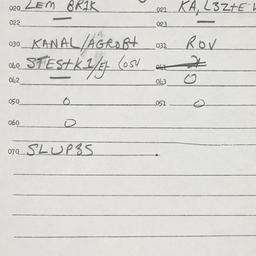 020 LEM BR1K 021 KA, L3Z+E
022 — 023 —
030 KANAL/AGROB+ 032 ROV
040 STES+K1/EJ (05V
042 — 043 0
050 0 051 0
060 0
070 SLUP3S .